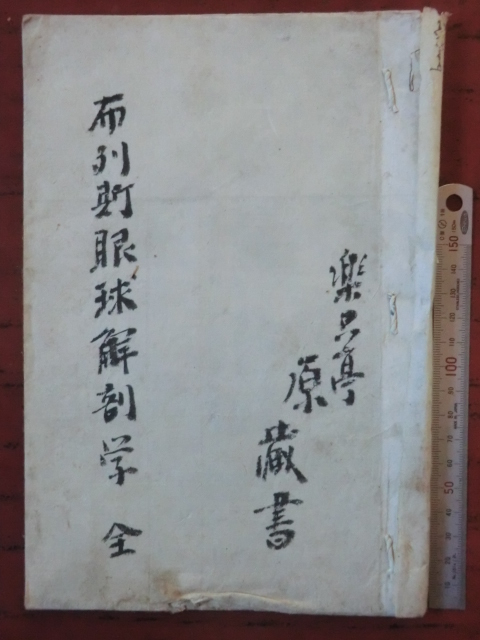 楽只亭
原藏書
布列町眼球解剖学 全
150
100
50